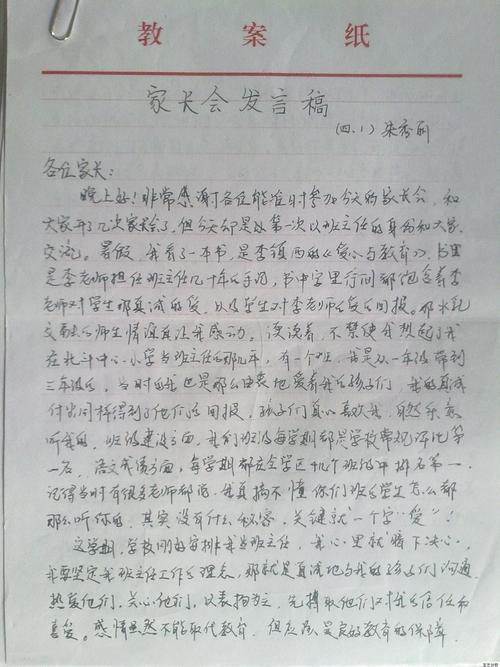 教案纸
家长会发言稿
(四.1) 朱秀丽
各位家长:
晚上好!非常感谢各位能准时参加今天的家长会,和
大家开了几次家长会了,但今天却是我第一次以班主任的身份和大家
交流。暑假,我看了一本书,是李镇西的《爱心与教育》,书里
是李老师担任班主任几十年的手记,书中字里行间都饱含着李
老师对学生那真诚的爱,以及学生对李老师的爱的回报。那水乳
交融的师生情谊真让我感动。读读着,不禁使我想起了我
在北斗中心小学当班主任的那几年,有一个班,我是从一年级带到
三年级的,当时的我也是那么由衷地爱着我的孩子们,我的真诚
付出同样得到了他们的回报,孩子们真心喜欢我,自然乐意
听我的,班级建设方面,我们班级每学期都是学校常规评比第
一名,语文成绩方面,每学期都在全学区几个班级中排名第一,
记得当时有很多老师都说,我真搞不懂你们班的学生怎么都
那么听你的,其实没有什么秘密,关键就一个字“爱”!
这学期,学校刚好安排我当班主任,我心里就暗下决心,
我要坚定我班主任工作的理念,那就是真诚地与我的孩子们沟通,
热爱他们,关心他们,以表扬为主,先博取他们对我的信任和
喜爱。感情虽然不能取代教育,但应该是良好的教育的保障,